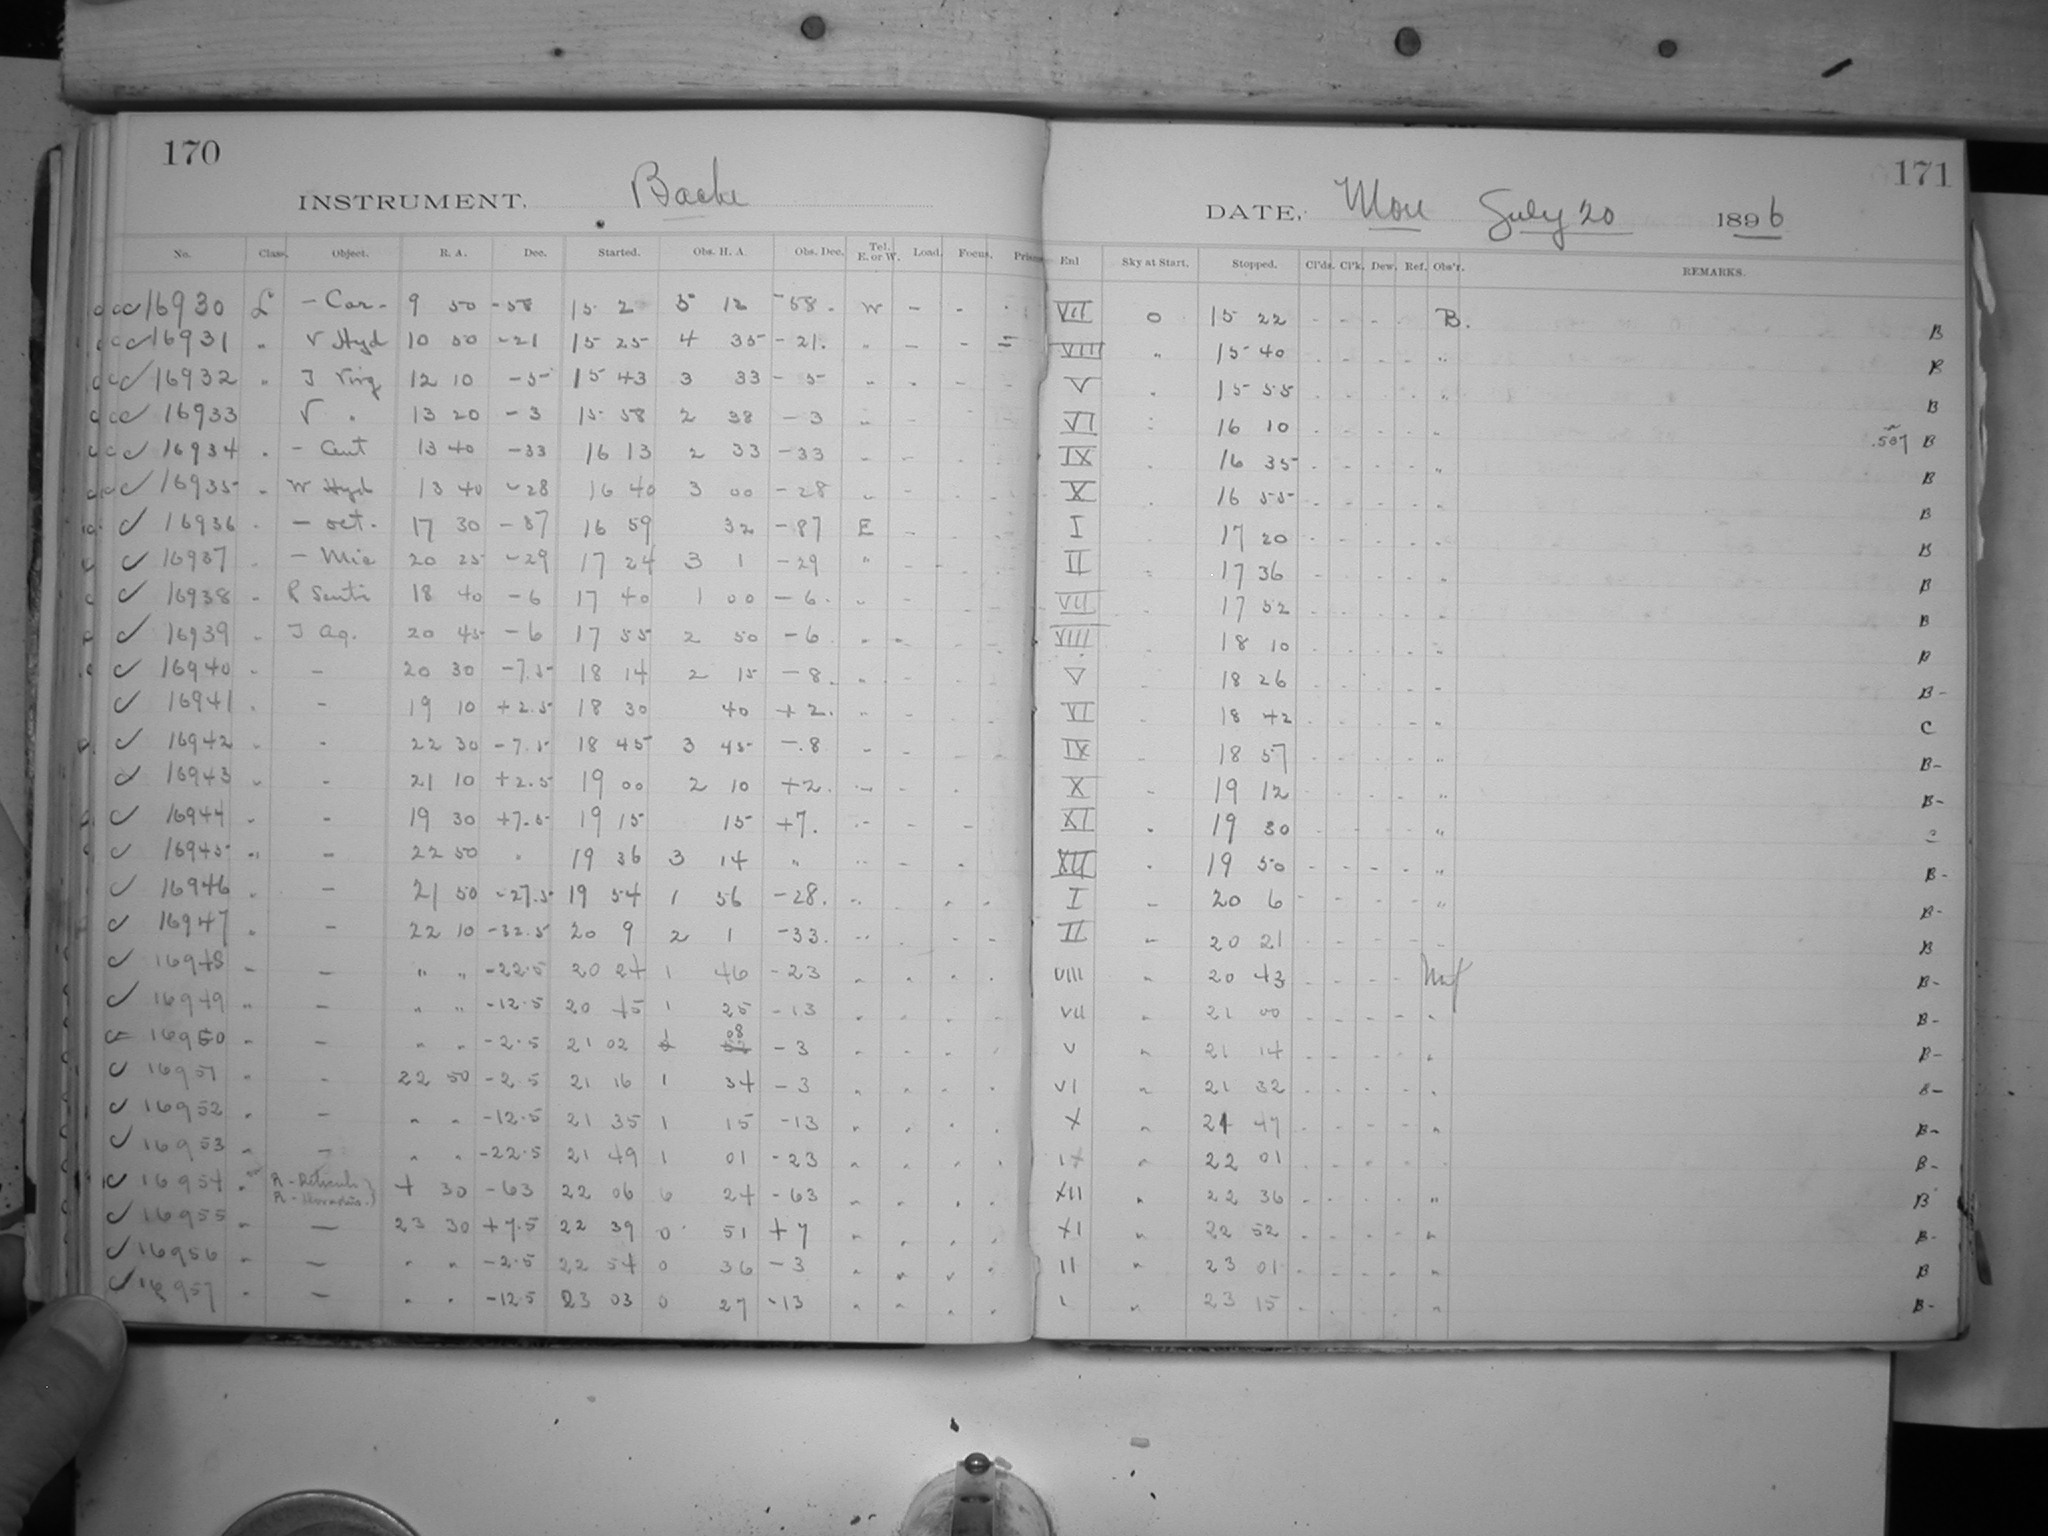 170
171
INSTRUMENT. Bache
DATE, Mon July 20 1896
No. Class. Object. R. A. Dec. Started. Obs. H. A. Obs. Dec. Tel. E. or W. Load. Focus. Enl Sky at Start. Stopped. Cl'ds. Cl'k. Dew. Ref. Obs'r. REMARKS.
16930 L - Car - 9 50 -58 15 2 5 12 -58. W - - VII 0 15 22 - - - - B. B
16931 " V Hyd 10 50 -21 15 25 4 35 -21. " - - = VIII " 15 40 - - - - " B
16932 " T Virg 12 10 -5 15 43 3 33 -5 " - - - V " 15 55 - - - - " B
16933 V " 13 20 -3 15 58 2 38 -3 " - - VI : 16 10 - - - - " .507 B
16934 " - Cent 13 40 -33 16 13 2 33 -33 - - - IX " 16 35 - - - - " B
16935 " W Hyd 13 40 -28 16 40 3 00 -28 " - - - X " 16 55 - - - - " B
16936 " - Oct. 17 30 -87 16 59 32 -87 E - - - I 17 20 - - - - " B
16937 " - Mic 20 25 -29 17 24 3 1 -29 " - - - II " 17 36 - - - - " B
16938 " R Scuti 18 40 -6 17 40 1 00 -6. " - - - VII " 17 52 - - - - " B
16939 " T Aq. 20 45 -6 17 55 2 50 -6 " - - - VIII " 18 10 - - - - " B
16940 " - 20 30 -7.5 18 14 2 15 -8. " - - - V " 18 26 - - - - " B -
16941 " - 19 10 +2.5 18 30 40 +2. " - - - VI " 18 42 - - - - " C
16942 " - 22 30 -7.5 18 45 3 45 -8 " - - - IX " 18 57 - - - - " B-
16943 " - 21 10 +2.5 19 00 2 10 +2. " - - X " 19 12 - - - - " B-
16944 " - 19 30 +7.5 19 15 15 +7. " - - XI " 19 30 - - - - " C
16945 " - 22 50 " 19 36 3 14 " " - - XII " 19 50 - - - - " B-
16946 " - 21 50 -27.5 19 54 1 56 -28. " - " " I " 20 6 - - - - " B-
16947 " - 22 10 -32.5 20 9 2 1 -33. " - - - II " 20 21 - - - - " B
16948 " - " " -22.5 20 24 1 46 -23 " " " " VIII " 20 43 - - - - B-
16949 " - " " -12.5 20 45 1 25 -13 " " " " VII " 21 00 - - - - " B-
16950 " - " " -2.5 21 02 1 08 -3 " " " " V " 21 14 - - - - " B-
16951 " - 22 50 -2.5 21 16 1 34 -3 " " " " VI " 21 32 - - - - " B-
16952 " - " " -12.5 21 35 1 15 -13 " " " " X " 21 47 - - - - " B-
16953 " - " " -22.5 21 49 1 01 -23 " " " " IX " 22 01 - - - - " B-
16954 " R - Reticuli } 4 30 -63 22 06 6 24 -63 " " " " XII " 22 36 - - - - " B
R - Horologii. }
16955 " - 23 30 +7.5 22 39 0 51 +7 " " " " XI " 22 52 - - - - " B-
16956 " - " " -2.5 22 54 0 36 -3 " " " " II " 23 01 - - - - " B
16957 " - " " -12.5 23 03 0 27 -13 " " " " I " 23 15 - - - - " B-